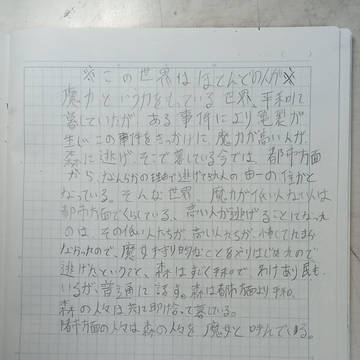 ※この世界はほとんどの人が※
魔力という力をもっている世界、平和に
暮していたが、ある事件により亀裂が
生じ この事件をきっかけに、魔力が高い人が、
森に逃げ、そこで暮している今では、都市方面
から、なんらかの理由で逃げてきた人の 唯一の住かと
なっている。そんな世界、魔力が低い人ない人は
都市方面でくらしている、高い人が逃げることになった
のは、その低い人たちが、高い人たちが、
なかったので、魔女すぎり的なことをやりはじめたので
逃げたということ、森はすごく平和で わけあり民も
いるが、普通に話す。森は都市方面より平和。
森の人々は共に助け合って暮している。
都市方面の人々は森の人々を 魔女と 呼んでいる。